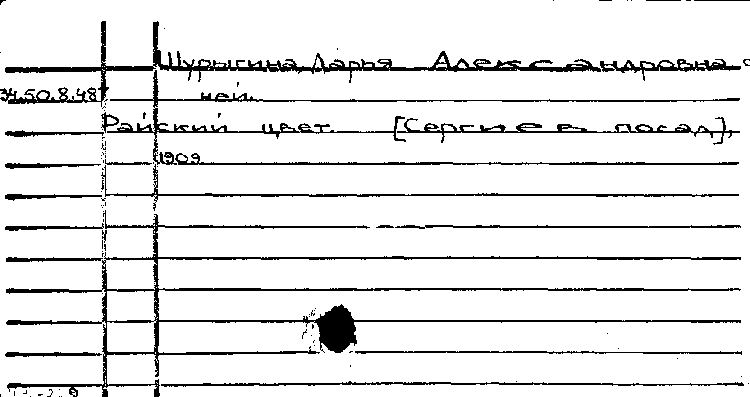 Шурыгина, Дарья Александровна о
34.50.8.487 ней.
Райский цвет. [Сергиев посад],
1909